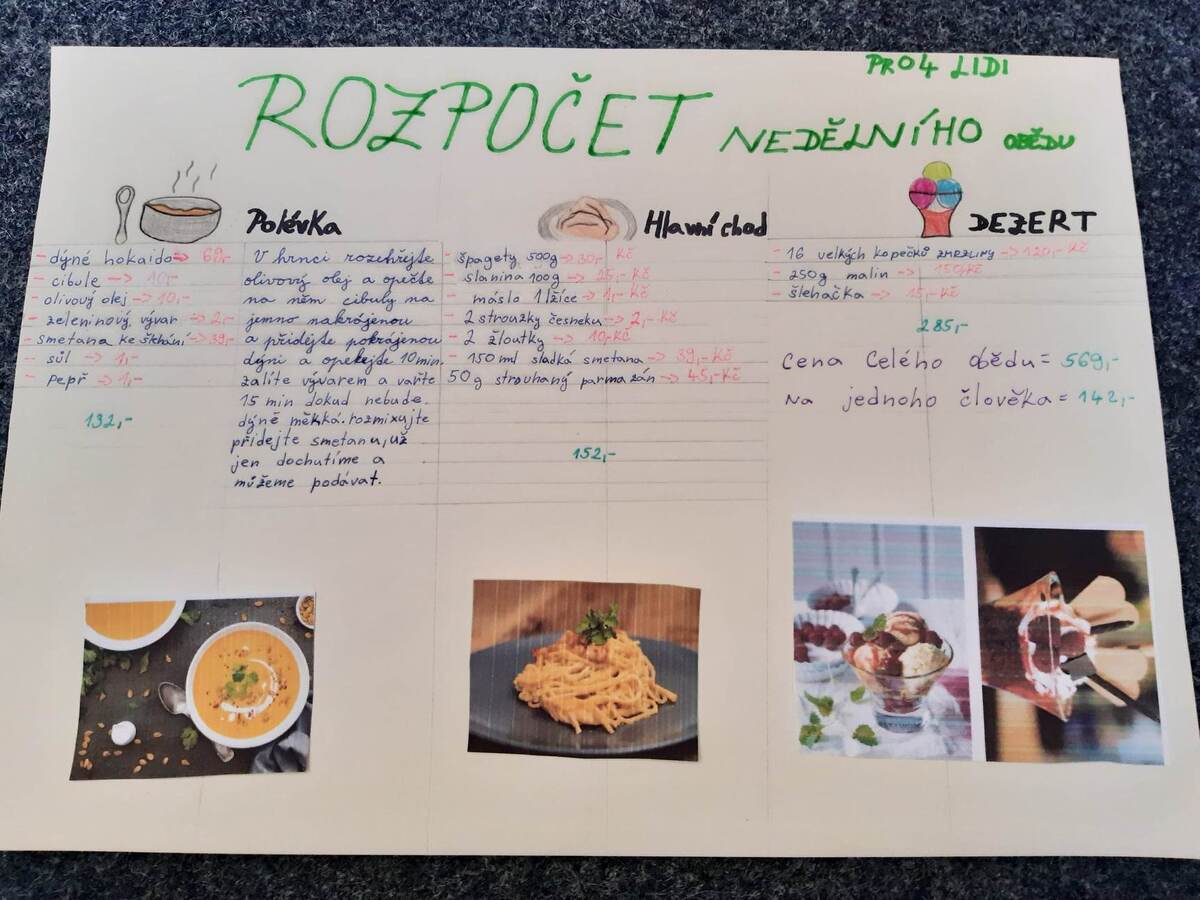 PRO 4 LIDI
ROZPOČET NEDĚLNÍHO OBĚDU
Polévka
- dýně hokaido → 69,-
- cibule → 10,-
- olivový olej → 10,-
- zeleninový vývar → 2,-
- smetana ke šlehání → 39,-
- sůl → 1,-
- pepř → 1,-
132,-
V hrnci rozehřejte
olivový olej a opečte
na něm cibuly na
jemno nakrájenou
a přidejte pokrájenou
dýni a opekejte 10 min.
zalíte vývarem a vařte
15 min dokud nebude
dýně měkká. rozmixujte
přidejte smetanu, už
jen dochutíme a
můžeme podávat.
Hlavní chod
- špagety 500g → 30,- Kč
- slanina 100g → 25,- Kč
- máslo 1 lžíce → 1,- Kč
- 2 stroužky česneku → 2,- Kč
- 2 žloutky → 10,- Kč
- 150 ml sladká smetana → 39,- Kč
50 g strouhaný parmazán → 45,- Kč
152,-
DEZERT
- 16 velkých kopečků zmrzliny → 120,- Kč
- 250g malin → 150,- Kč
- šlehačka → 15,- Kč
285,-
Cena celého obědu = 569,-
Na jednoho člověka = 142,-